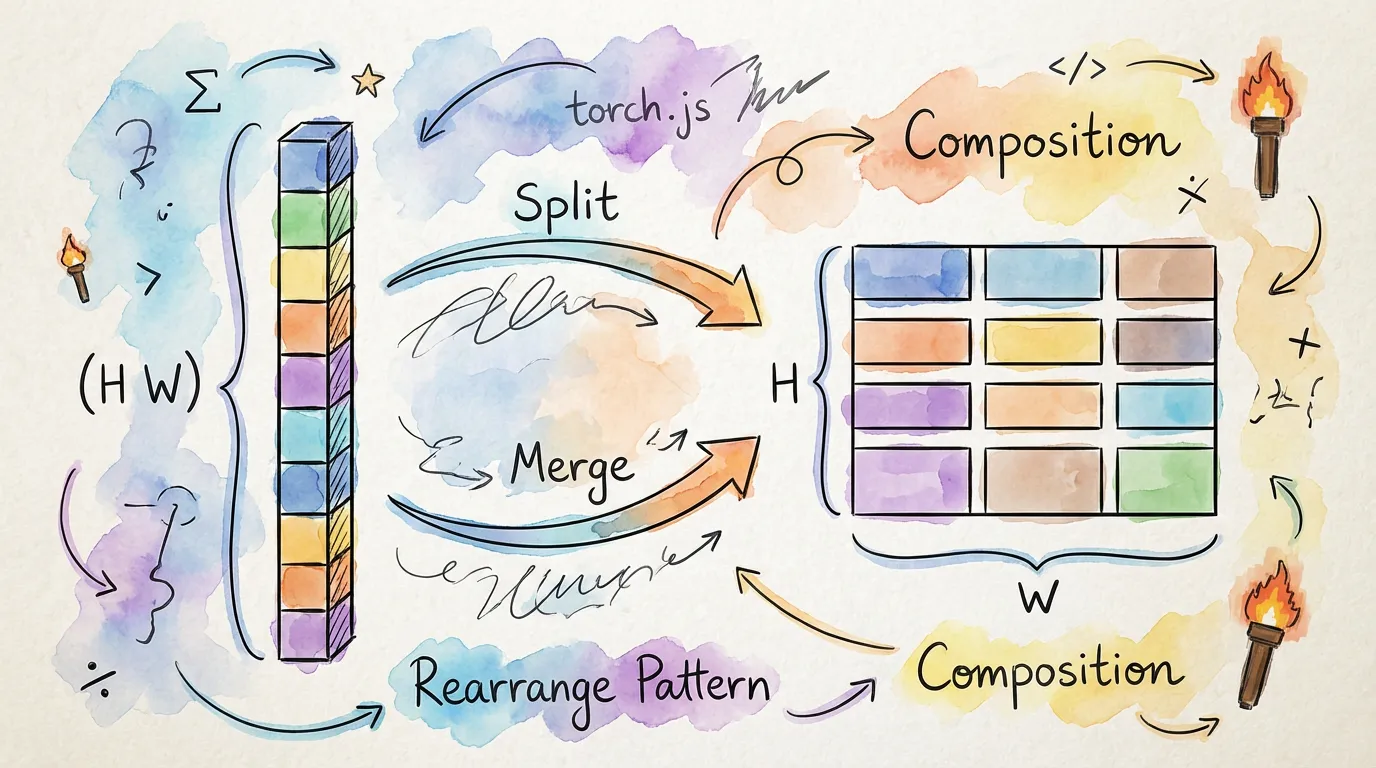 Σ
torch.js
</>
Composition
Split
(H W)
H
Merge
W
Rearrange Pattern
Composition